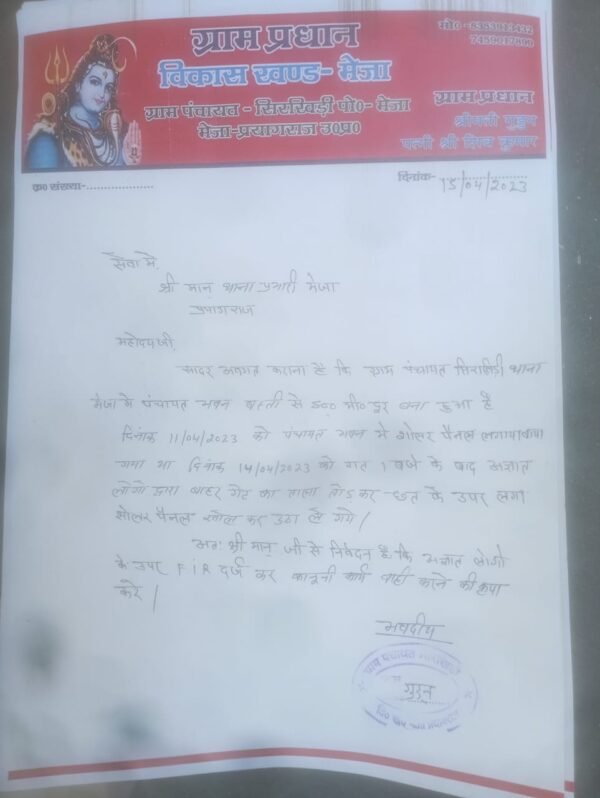 ग्राम प्रधान
विकास खण्ड- मेजा
ग्राम पंचायत - सिरखिड़ी पो०- मेजा
मेजा-प्रयागराज उ०प्र०
मो०
ग्राम प्रधान
श्रीमती गुड्डन
पत्नी श्री शिव कुमार
क्र० संख्या-
दिनांक- 15/04/2023
सेवा मे,
श्री मान् थाना प्रभारी मेजा
प्रयागराज
महोदयजी,
सादर अवगत कराना है कि ग्राम पंचायत सिरखिड़ी थाना
मेजा के पंचायत भवन बस्ती से 500 मी० दूर बना हुआ है
दिनांक 11/04/2023 को पंचायत भवन मे शोलर पैनल
गया था दिनांक 14/04/2023 को रात 1 बजे के बाद अज्ञात
लोगो द्वारा बाहर गेट का ताला तोड कर छत के उपर लगा
सोलर पैनल खोल कर उठा ले गये।
अतः श्री मान् जी से निवेदन है कि अज्ञात लोगो
के उपर FiR दर्ज कर कानूनी कार्य वाही करने की कृपा
करे।
भवदीय
गुड्डन